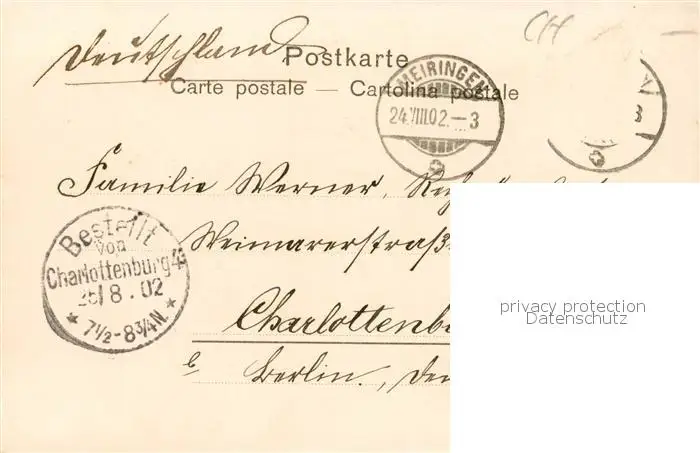 CH
Deutschland
Postkarte
Carte postale — Cartolina postale
MEIRINGEN
24.VIII.02.—3
Familie Werner,
Weimarerstraß
Charlottenb
b/ Berlin.
Bestellt
von
Charlottenburg 4
25/8.02
* 7½-8¾N. *
privacy protection
Datenschutz